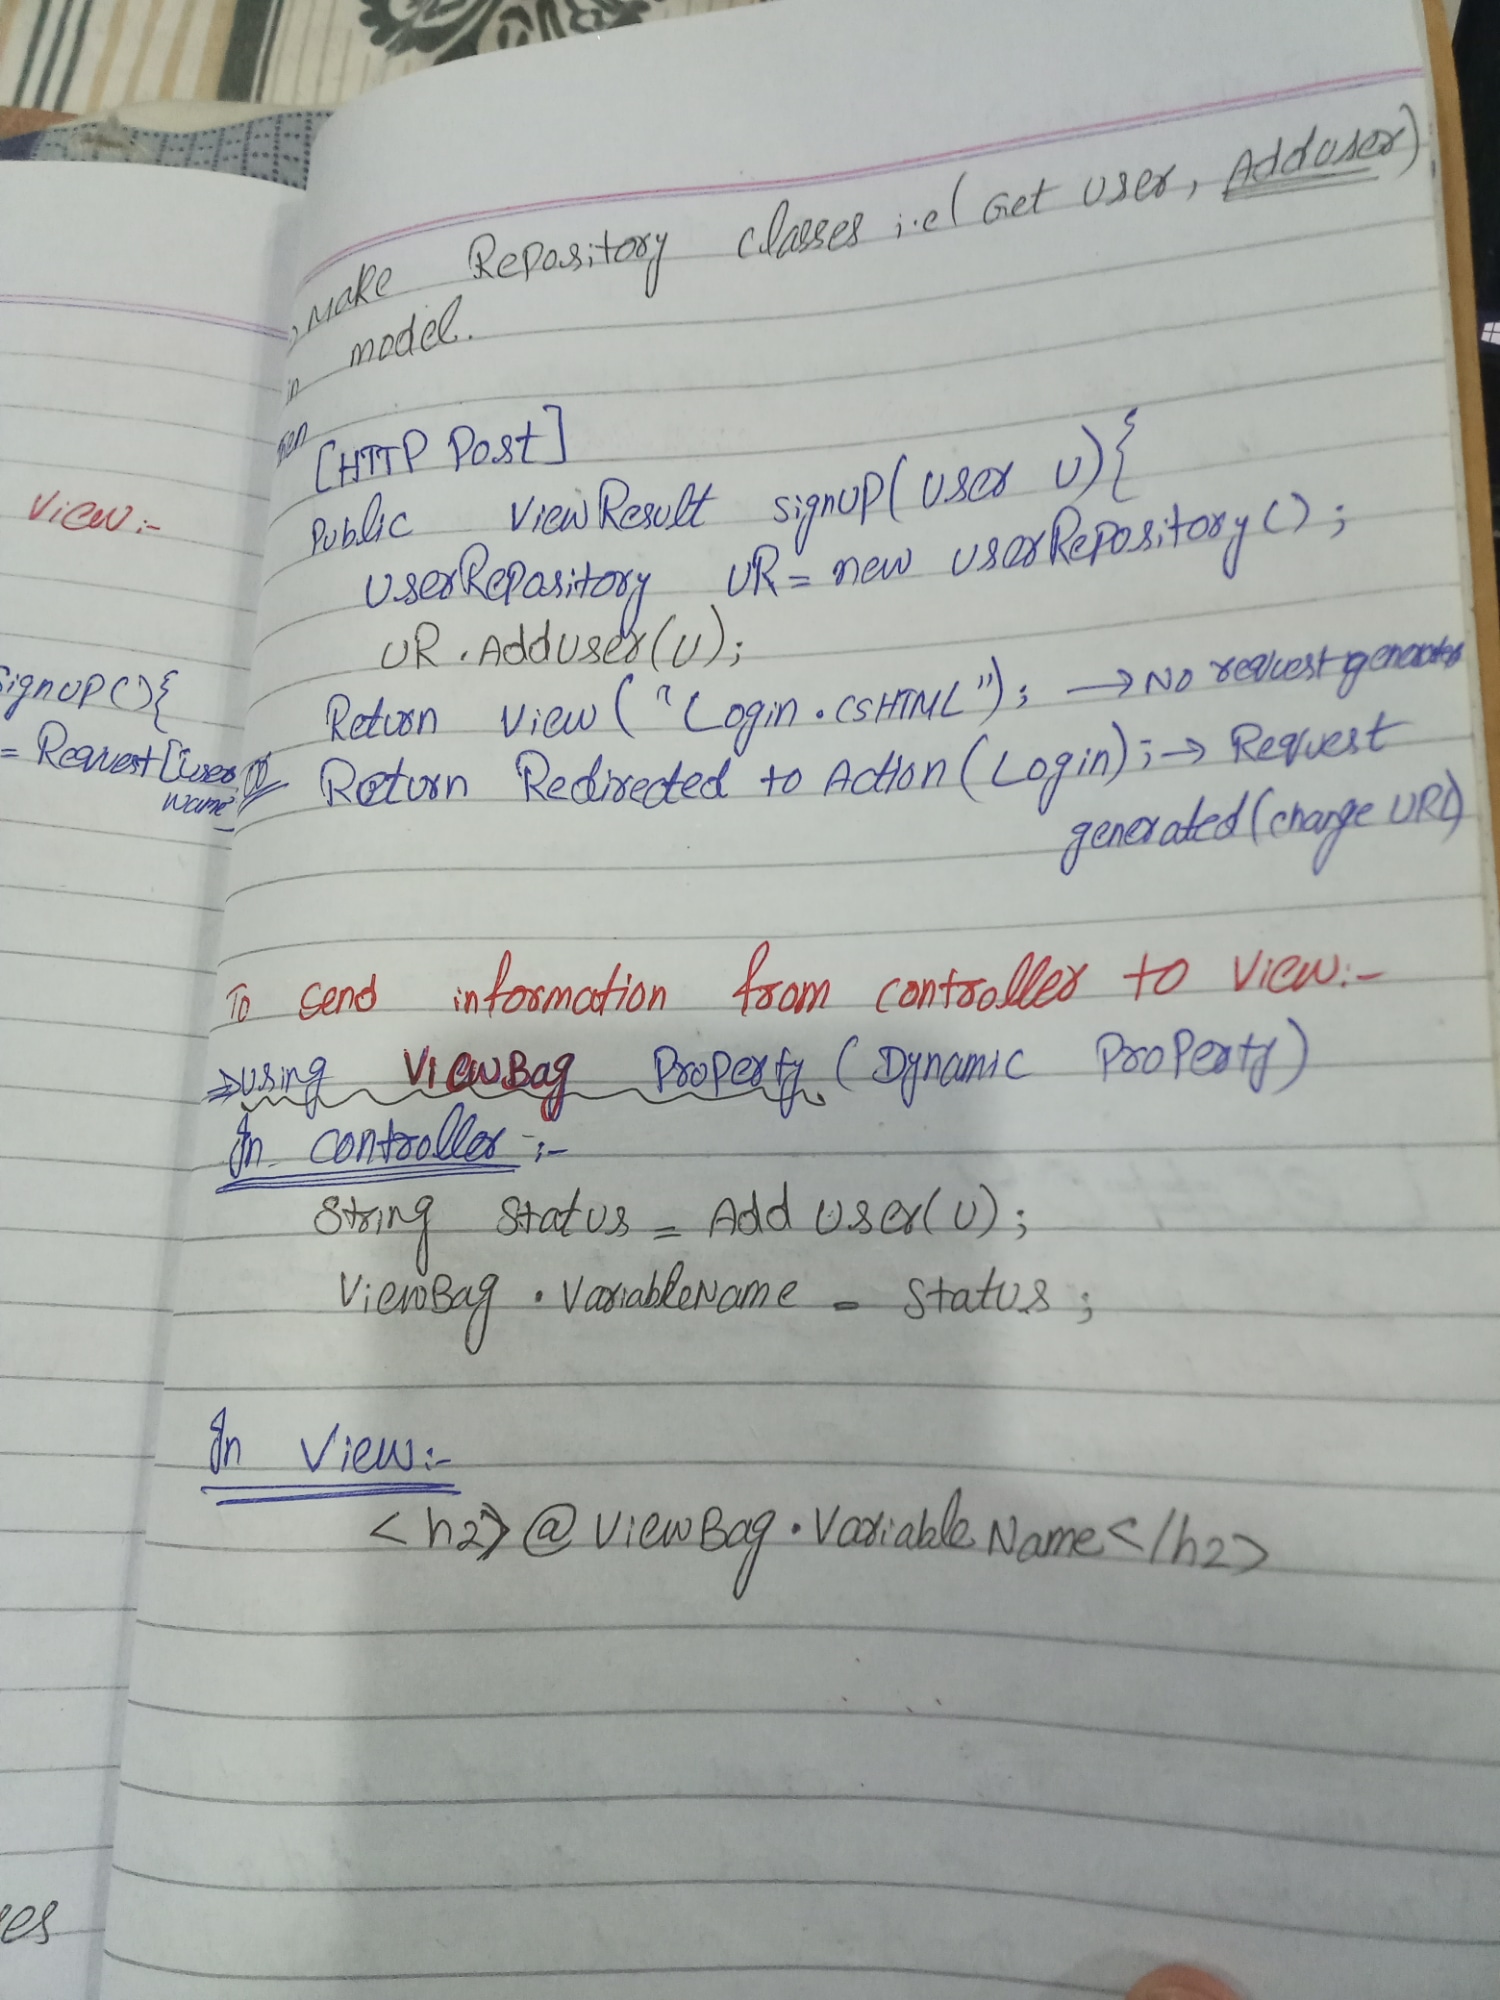 View:-
SignUP(){
= Request[user
Name
es
, Make Repository classes i.e( Get User, AddUser),
in model.
then
[HTTP Post]
Public ViewResult signUP(User U){
UserRepository UR = new UserRepository();
UR.AddUser(U);
Return View("Login.CSHTML"); → No request generates
Return Redirected to Action(Login); → Request
generated(change URL)
To Send information from controller to View:-
⇒ using ViewBag Property (Dynamic Property)
In controller :-
String Status = Add User(U);
ViewBag . VariableName = Status;
In View:-
<h2>@ViewBag.VariableName</h2>